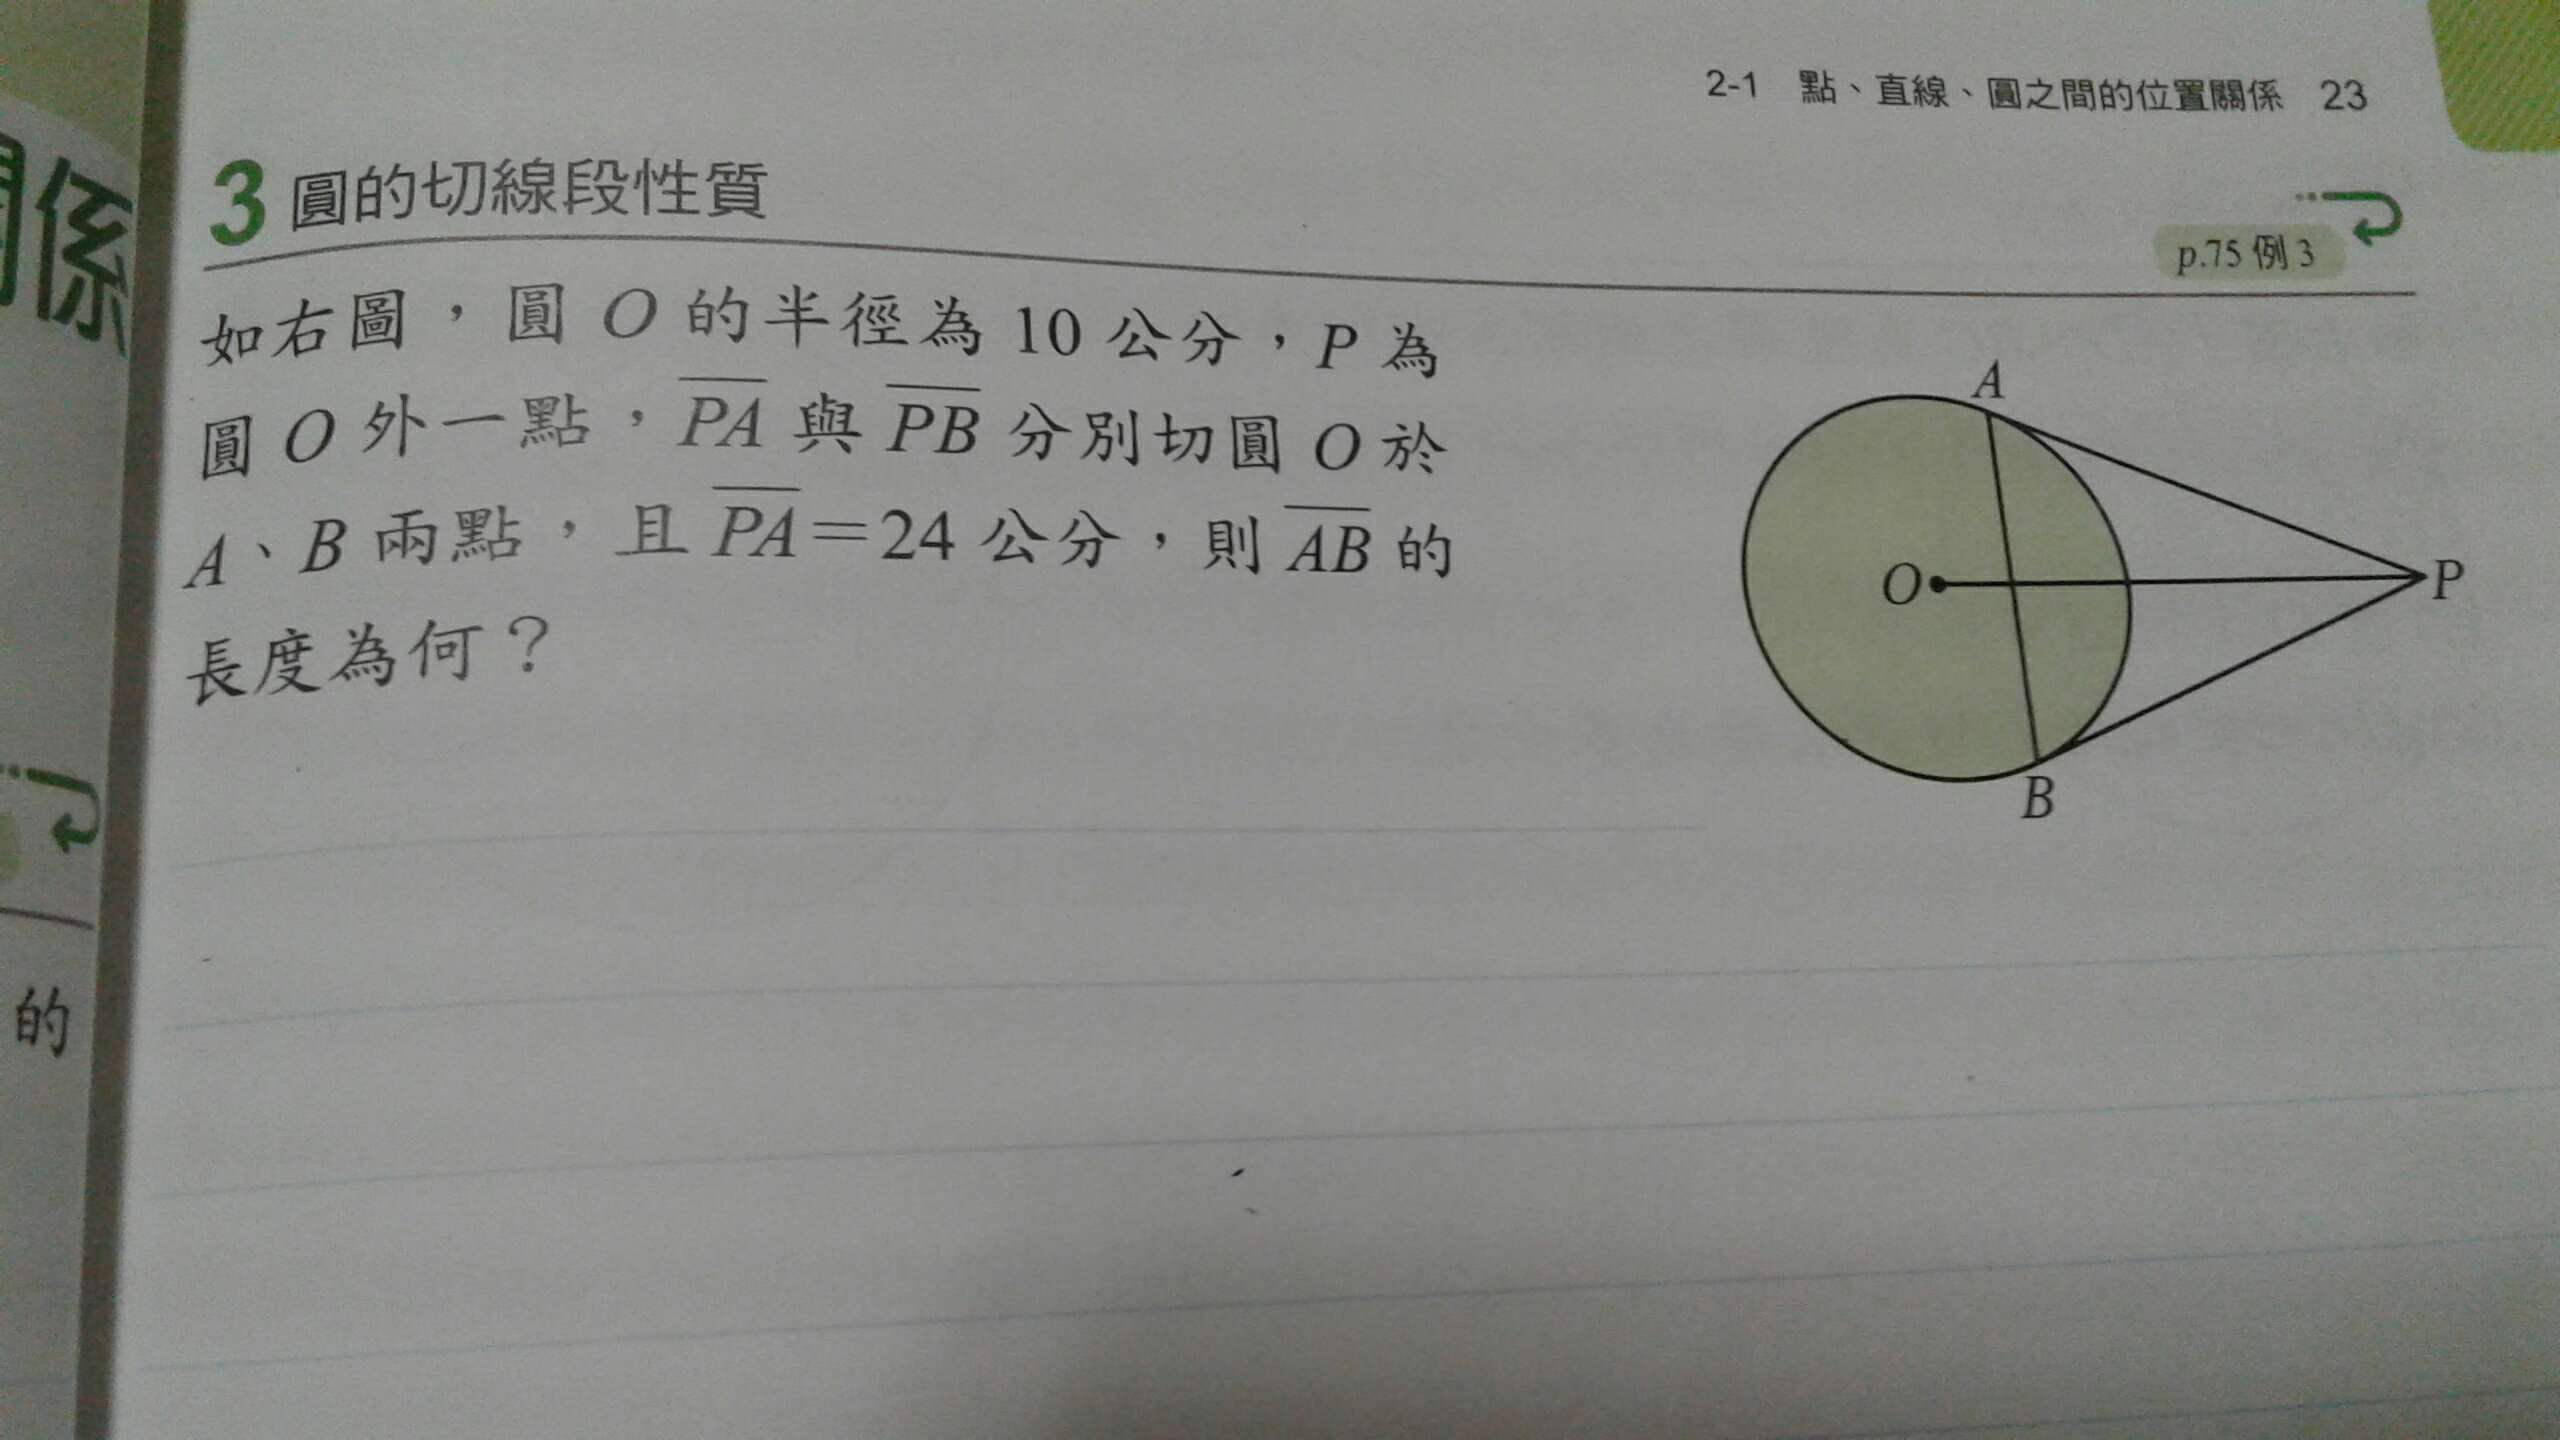 2-1 點、直線、圓之間的位置關係 23
3 圓的切線段性質
p.75 例 3
如右圖，圓 O 的半徑為 10 公分，P 為
圓 O 外一點，PA 與 PB 分別切圓 O 於
A、B 兩點，且 PA＝24 公分，則 AB 的
長度為何？
A
O
P
B
係
的